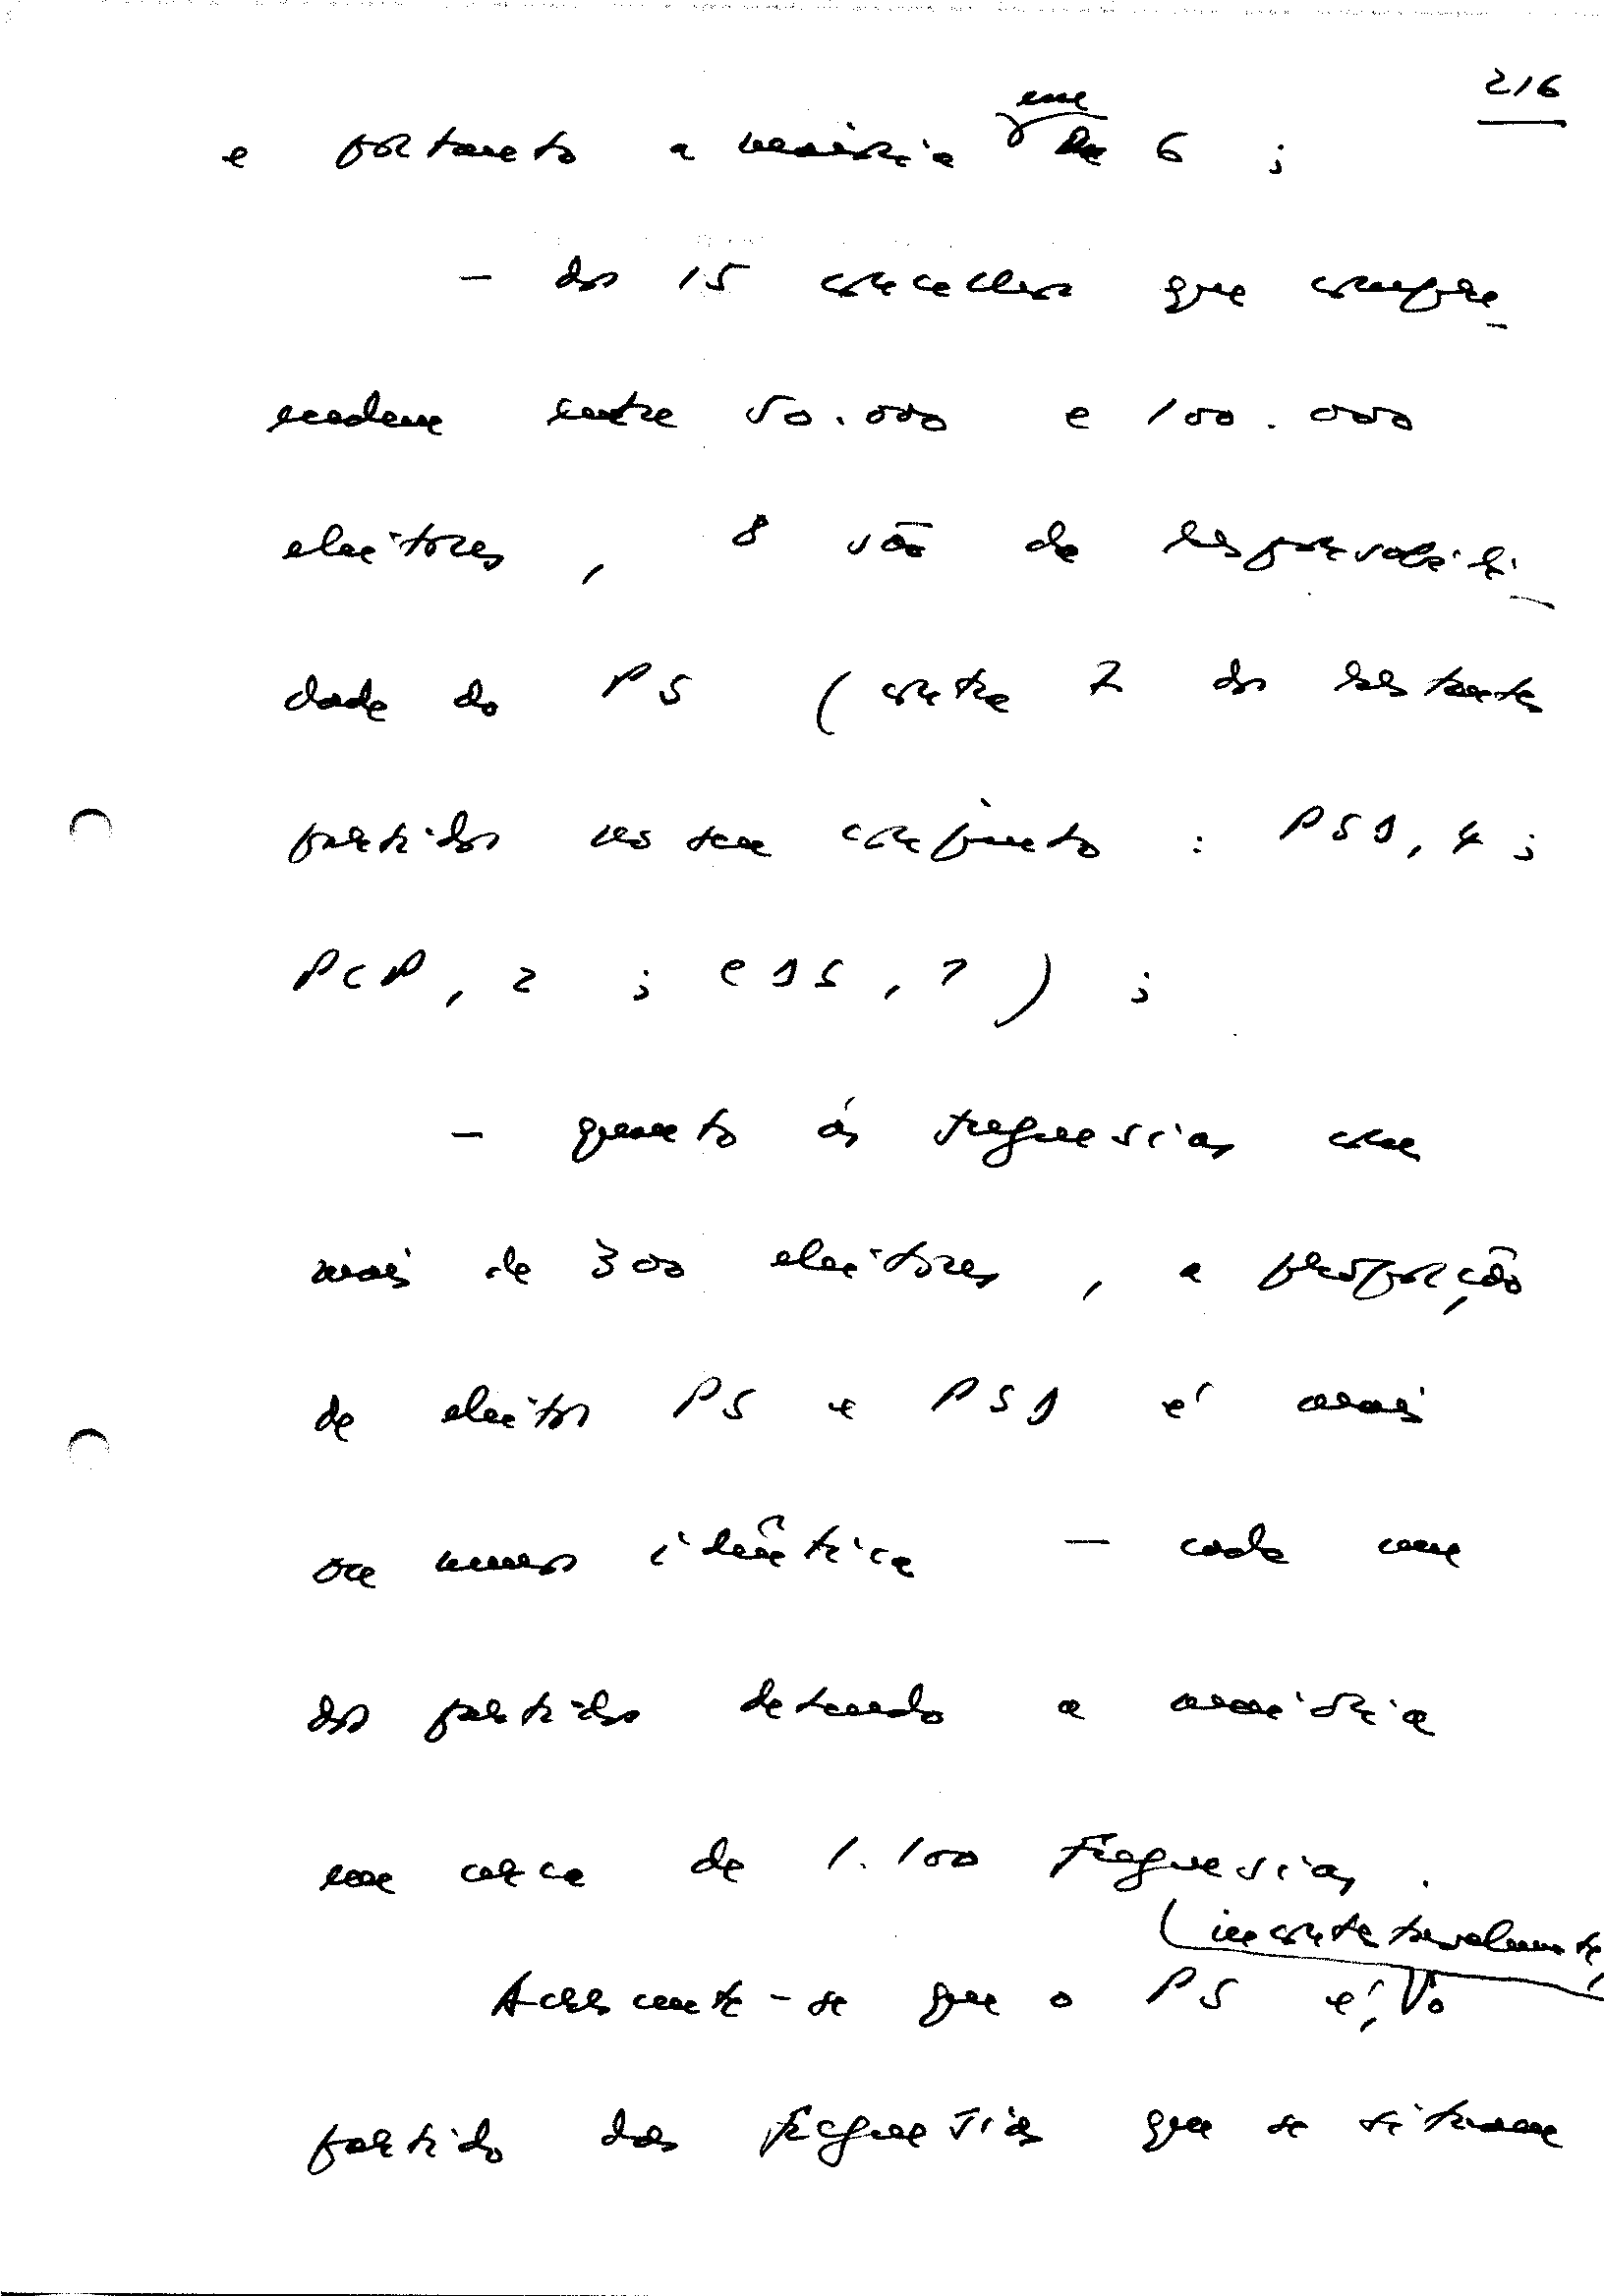 216
e portanto a maioria em 6 ;
- dos 15 concelhos que compre_
endem entre 50.000 e 100.000
eleitores, 8 são da responsabili_
dade do PS (contra 7 dos restantes
partidos no seu conjunto : PSD, 4 ;
PCP, 2 ; CDS, 1) ;
- quanto às freguesias com
mais de 300 eleitores, a proporção
de eleitos PS e PSD é mais
ou menos idêntica - cada um
dos partidos detendo a maioria
em cerca de 1.100 freguesias.
Acrescente-se que o PS é, incontestavelmente, o
partido das freguesias que se situam